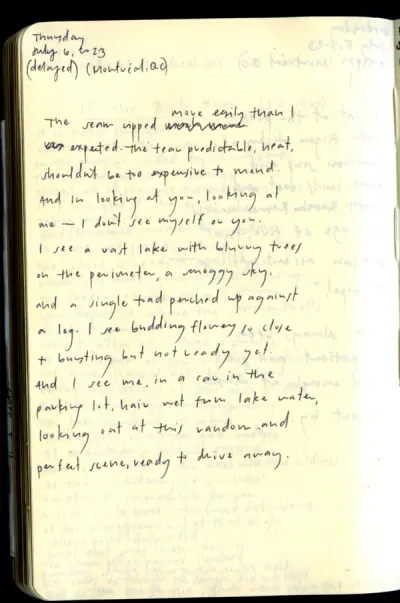 Thursday
July 6, 2023
(delayed) (Montréal. QC)
more easily than I
The seam ripped
expected. The tear predictable, neat,
shouldn't be too expensive to mend.
And in looking at you, looking at
me — I don't see myself or you.
I see a vast lake with blurry trees
on the perimeter, a smoggy sky.
and a single toad perched up against
a log. I see budding flowers so close
to bursting but not ready yet.
And I see me, in a car in the
parking lot, hair wet from lake water,
looking out at this random and
perfect scene, ready to drive away.